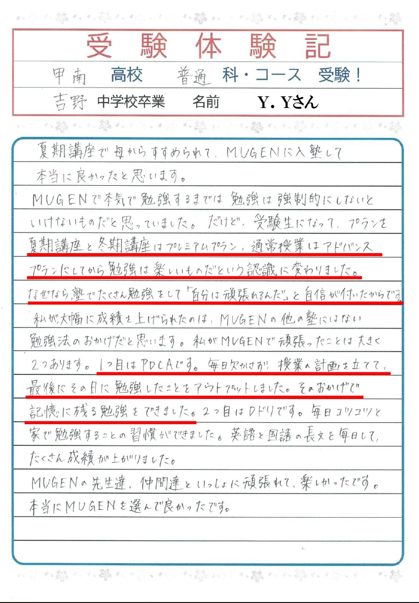 受験体験記
甲南 高校 普通 科・コース 受験！
吉野 中学校卒業 名前 Y．Yさん
夏期講座で母からすすめられて、MUGENに入塾して
本当に良かったと思います。
MUGENで本気で勉強するまでは勉強は強制的にしないと
いけないものだと思っていました。だけど、受験生になって、プランを
夏期講座と冬期講座はプレミアムプラン、通常授業はアドバンス
プランにしてから勉強は楽しいものだという認識に変わりました。
なぜなら、塾でたくさん勉強をして「自分は頑張れるんだ」と自信が付いたからです。
私が大幅に成績を上げられたのは、MUGENの他の塾にはない
勉強法のおかげだと思います。私がMUGENで頑張ったことは大きく
2つあります。1つ目はPDCAです。毎日欠かさず、授業の計画は立てて、
最後にその日に勉強したことをアウトプットしました。そのおかげで
記憶に残る勉強をできました。2つ目はDドリです。毎日コツコツと
家で勉強することの習慣ができました。英語と国語の長文を毎日して、
たくさん成績が上がりました。
MUGENの先生達、仲間達といっしょに頑張れて、楽しかったです。
本当にMUGENを選んで良かったです。